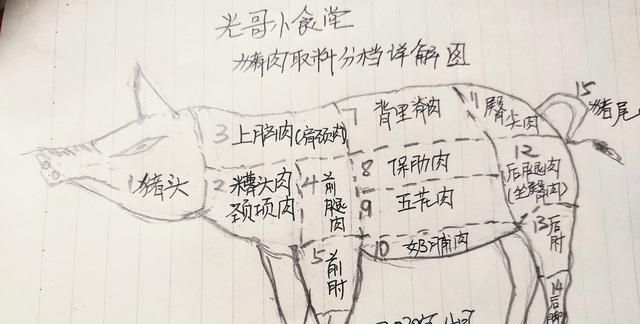 光哥小食堂
猪肉取料分档详解图
1猪头
2 糟头肉
颈项肉
3 上脑肉(肩颈肉)
4 前腿肉
5 前肘
7 背里脊肉
8 保肋肉
9 五花肉
10 奶脯肉
11 臀尖肉
12
后腿肉
(坐臀肉)
13 后肘
14 后脚
15
猪尾